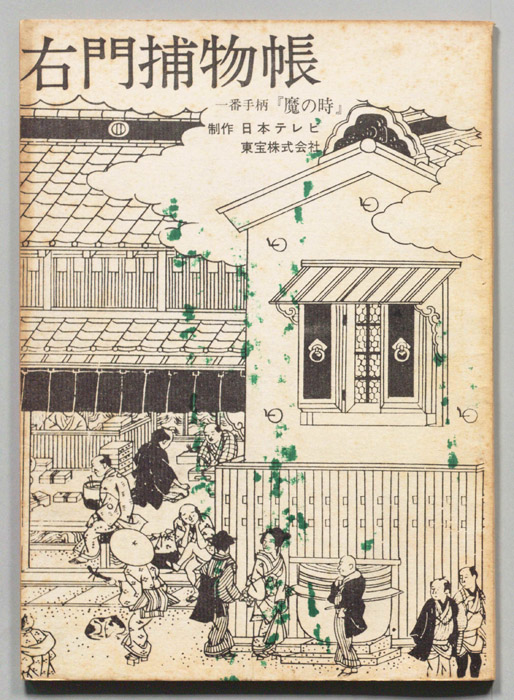 右門捕物帳
一番手柄『魔の時』
制作 日本テレビ
東宝株式会社